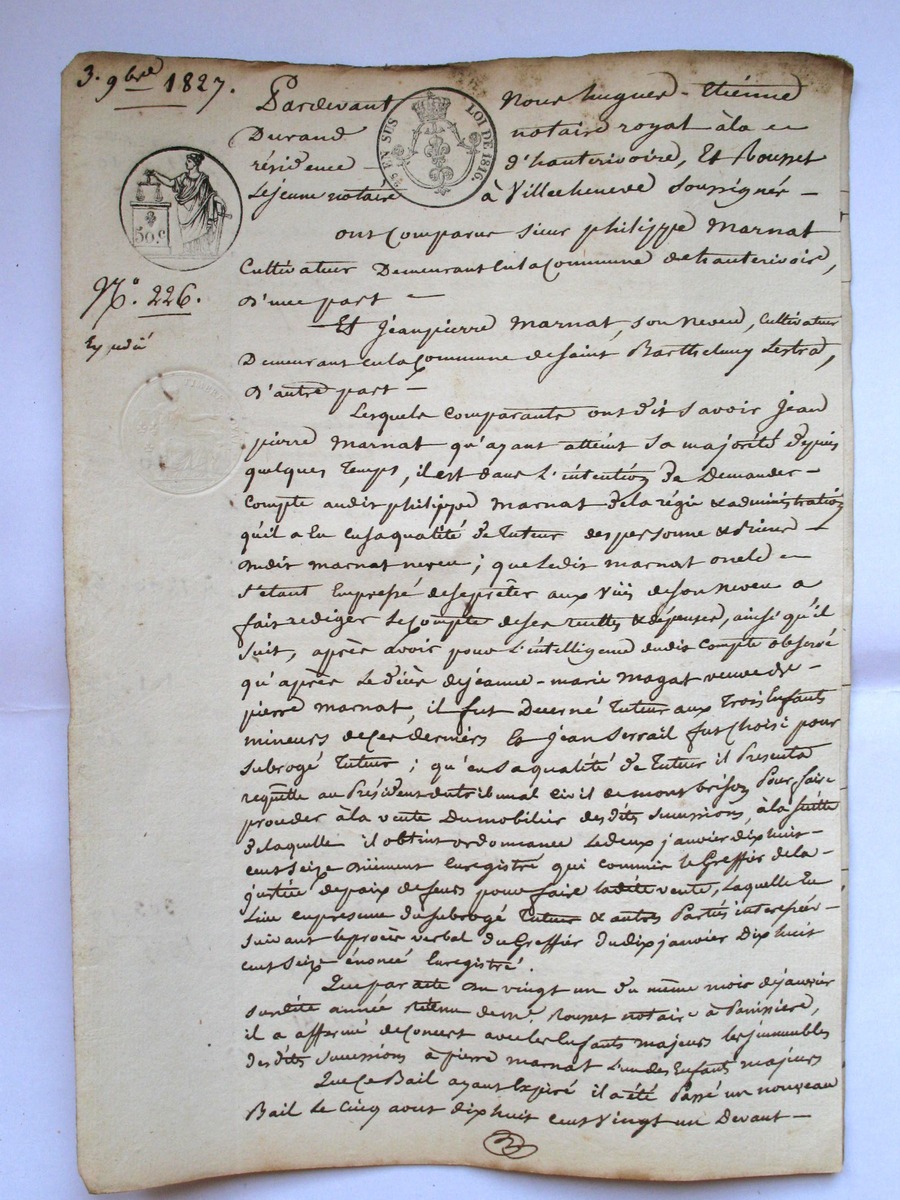 3. 9bre 1827.
Pardevant Nous hugues - Etiénne
Durand notaire royal à la
résidence d'hauterivoire, Et Rousset
Lejeune notaire à Villecheneve soussignés -
25 EN SUS LOI DE 1816.
50. c
N.o 226.
ont Comparus sieur philippe Marnat
Cultivateur Demeurant En la Commune de hauterivoire,
d'une part -
Et Jeanpierre Marnat, son Neveu, Cultivateur
Demeurant en la Commune de Saint Barthelemy Lestra,
d'autre part -
Lesquels Comparants ont dit savoir Jean
pierre Marnat qu'ayant atteint sa majorité depuis
quelques Temps, il est dans L'intention de Demander -
Compte audit philippe Marnat de la régie & administration
qu'il a Eu En sa qualité de Tuteur des personne & biens -
dudit marnat neveu ; que Ledit marnat oncle
s'etant Empressé de se prêter aux Vües de son Neveu a
fait rediger Le Compte de ses recettes & dépenses, ainsi qu'il
suit, après avoir pour L'intelligence dudit Compte observé
qu'après Le décès de jeanne - marie Magat veuve de -
pierre Marnat, il fut Decerné Tuteur aux Trois Enfants
mineurs de Ces derniérs Et Jean Serrail fut Choisi pour
subrogé Tuteur ; qu'en sa qualité de Tuteur il Presenta
requête au Président du tribunal Civil de montbrison Pour faire
proceder à la vente Du mobilier des dites successions, à la suite
de laquelle il obtint ordonnance Le deux janvier dix huit -
cent Seize dûement Enregistré qui commis le Greffier de la -
justice de paix de feurs pour faire la dite vente, Laquelle Eu
Lieu en presence du subrogé Tuteur & autres Parties interessées -
suivant le procès verbal du Greffier du dix janvier Dix huit
cent Seize énoncé Enregistré.
Que par acte du vingt un du même mois de janvier
susdite année retenu de me. Rousset notaire à Panissiere,
il a affermé de Concert avec les Enfants majeurs les immeubles
des dites successions à pierre Marnat L'un des Enfants majeurs
Que Ce Bail ayant Expiré il a été Passé un nouveau
Bail Le Cinq aout dix huit cent Vingt un Devant -